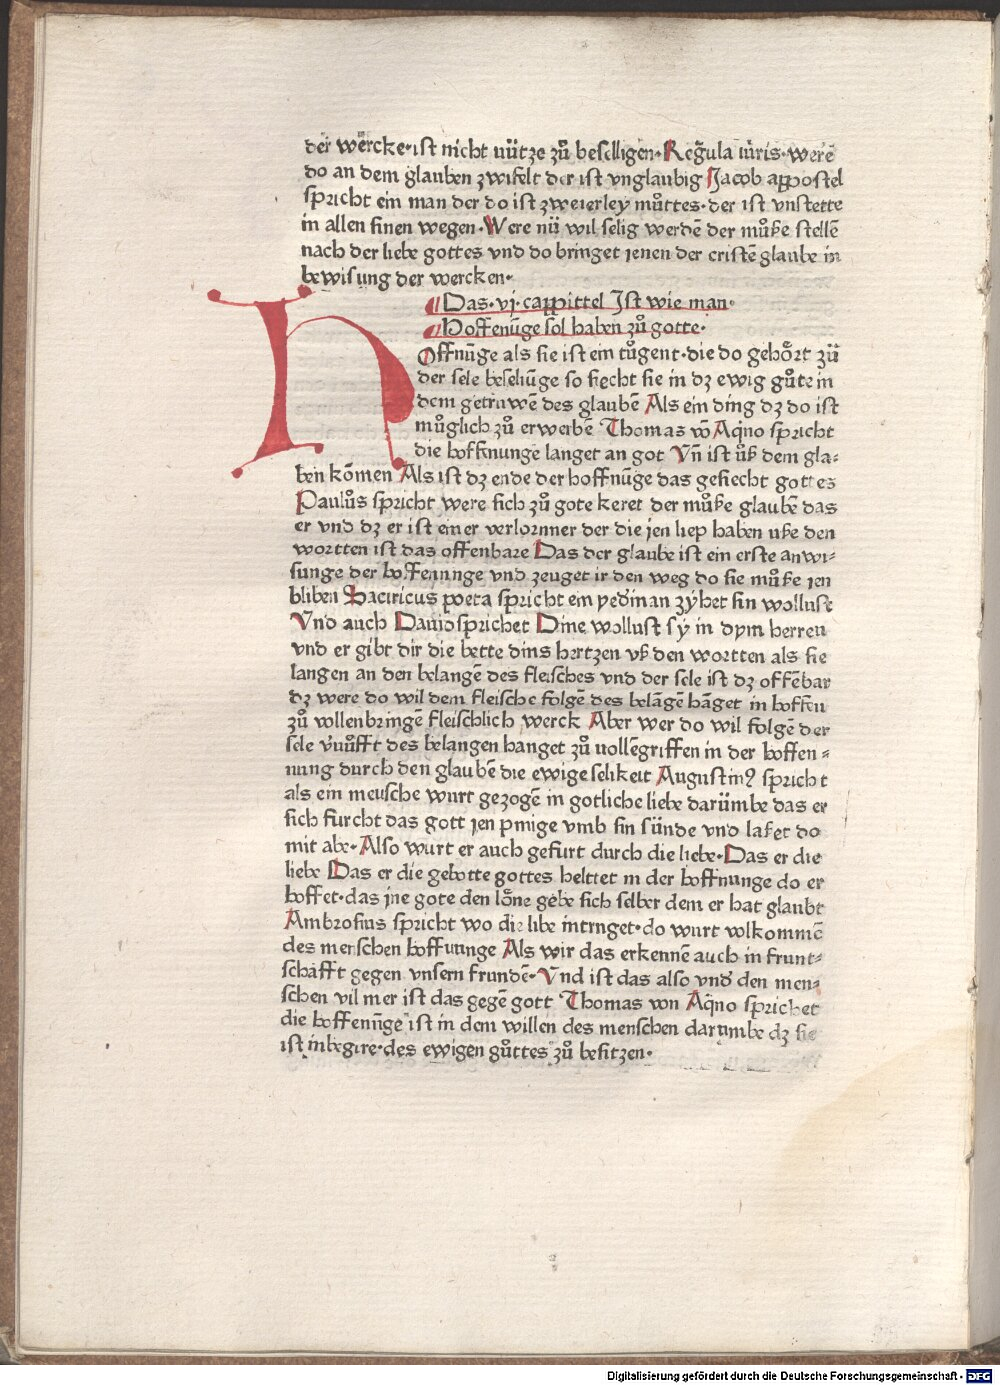 der wercke·ist nicht nütze zů beselligen·Regula iuris·werē
do an dem glauben zwifelt der ist vnglaubig Jacob appostel
spricht ein man der do ist zweierley můttes·der ist vnstette
in allen sinen wegen·Were nü wil selig werdē der můße stellē
nach der liebe gottes vnd do bringet ienen der cristē glaube in
bewisung der wercken·
Das·vj·cappittel Ist wie man·
Hoffenūge sol haben zů gotte·
HOffnūge als sie ist ein tůgent·die do gehört zů
der sele beseliūge so siecht sie in dz ewig gůte in
dem getruwē des glaubē Als ein ding dz do ist
můglich zů erwerbē Thomas vō Aq̄no spricht
die hoffenunge langet an got Vn̄ ist ūß dem gla-
ben kōmen Als ist dz ende der hoffnūge das gesiecht gottes
Paulůs spricht were sich zů gote keret der můße glaubē das
er vnd dz er ist einer verlornner der die jen liep haben uße den
wortten ist das offenbare Das der glaube ist ein erste anwi-
sunge der hoffennnge vnd zeuget ir den weg do sie můße ien
bliben Saciricus poeta spricht ein yedman zyhet sin wollust
Vnd auch Dauid sprichet Dine wollust sy in dym herren
vnd er gibt dir die bette dins hertzen vß den wortten als sie
langen an den belangē des fleisches vnd der sele ist dz offēbar
dz were do wil dem fleische folgē des belāgē hāget in hoffēn
zů vollenbringē fleischlich werck Aber wer do wil folgē der
sele v̄nůfft des belangen hanget zů uollēgriffen in der hoffen-
nung durch den glaubē die ewige selikeit Augustinꝰ spricht
als ein mensche wurt gezogē in gotliche liebe darümbe das er
sich furcht das gott jen pinige vmb sin sünde vnd laßet do
mit abe·Also wurt er auch gefurt durch die liebe·Das er die
liebe Das er die gebotte gottes heltet in der hoffnunge do er
hoffet·das jne gote den löne gebe sich selber dem er hat glaubt
Ambrosius spricht wo die libe intrnget·do wurt volkommē
des menschen hoffnunge Als wir das erkennē auch in frunt-
schafft gegen vnsern frundē·Vnd ist das also vnd den men-
schen vil mer ist das gegē gott Thomas von Aq̄no sprichet
die hoffenūge ist in dem willen des menschen darumbe dz sie
ist inbegire·des ewigen gůttes zů besitzen·
Digitalisierung gefördert durch die Deutsche Forschungsgemeinschaft - DFG